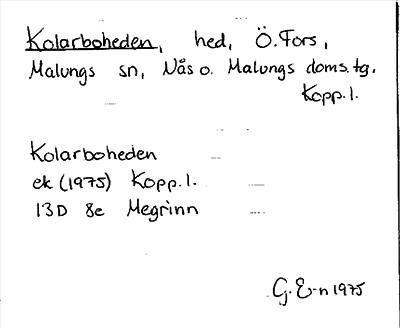 Kolarboheden, hed, Ö. Fors,
Malungs sn, Nås o. Malungs doms.tg.
Kopp.l.
Kolarboheden
ek (1975) Kopp.l.
13D 8e Megrinn
G. E-n 1975